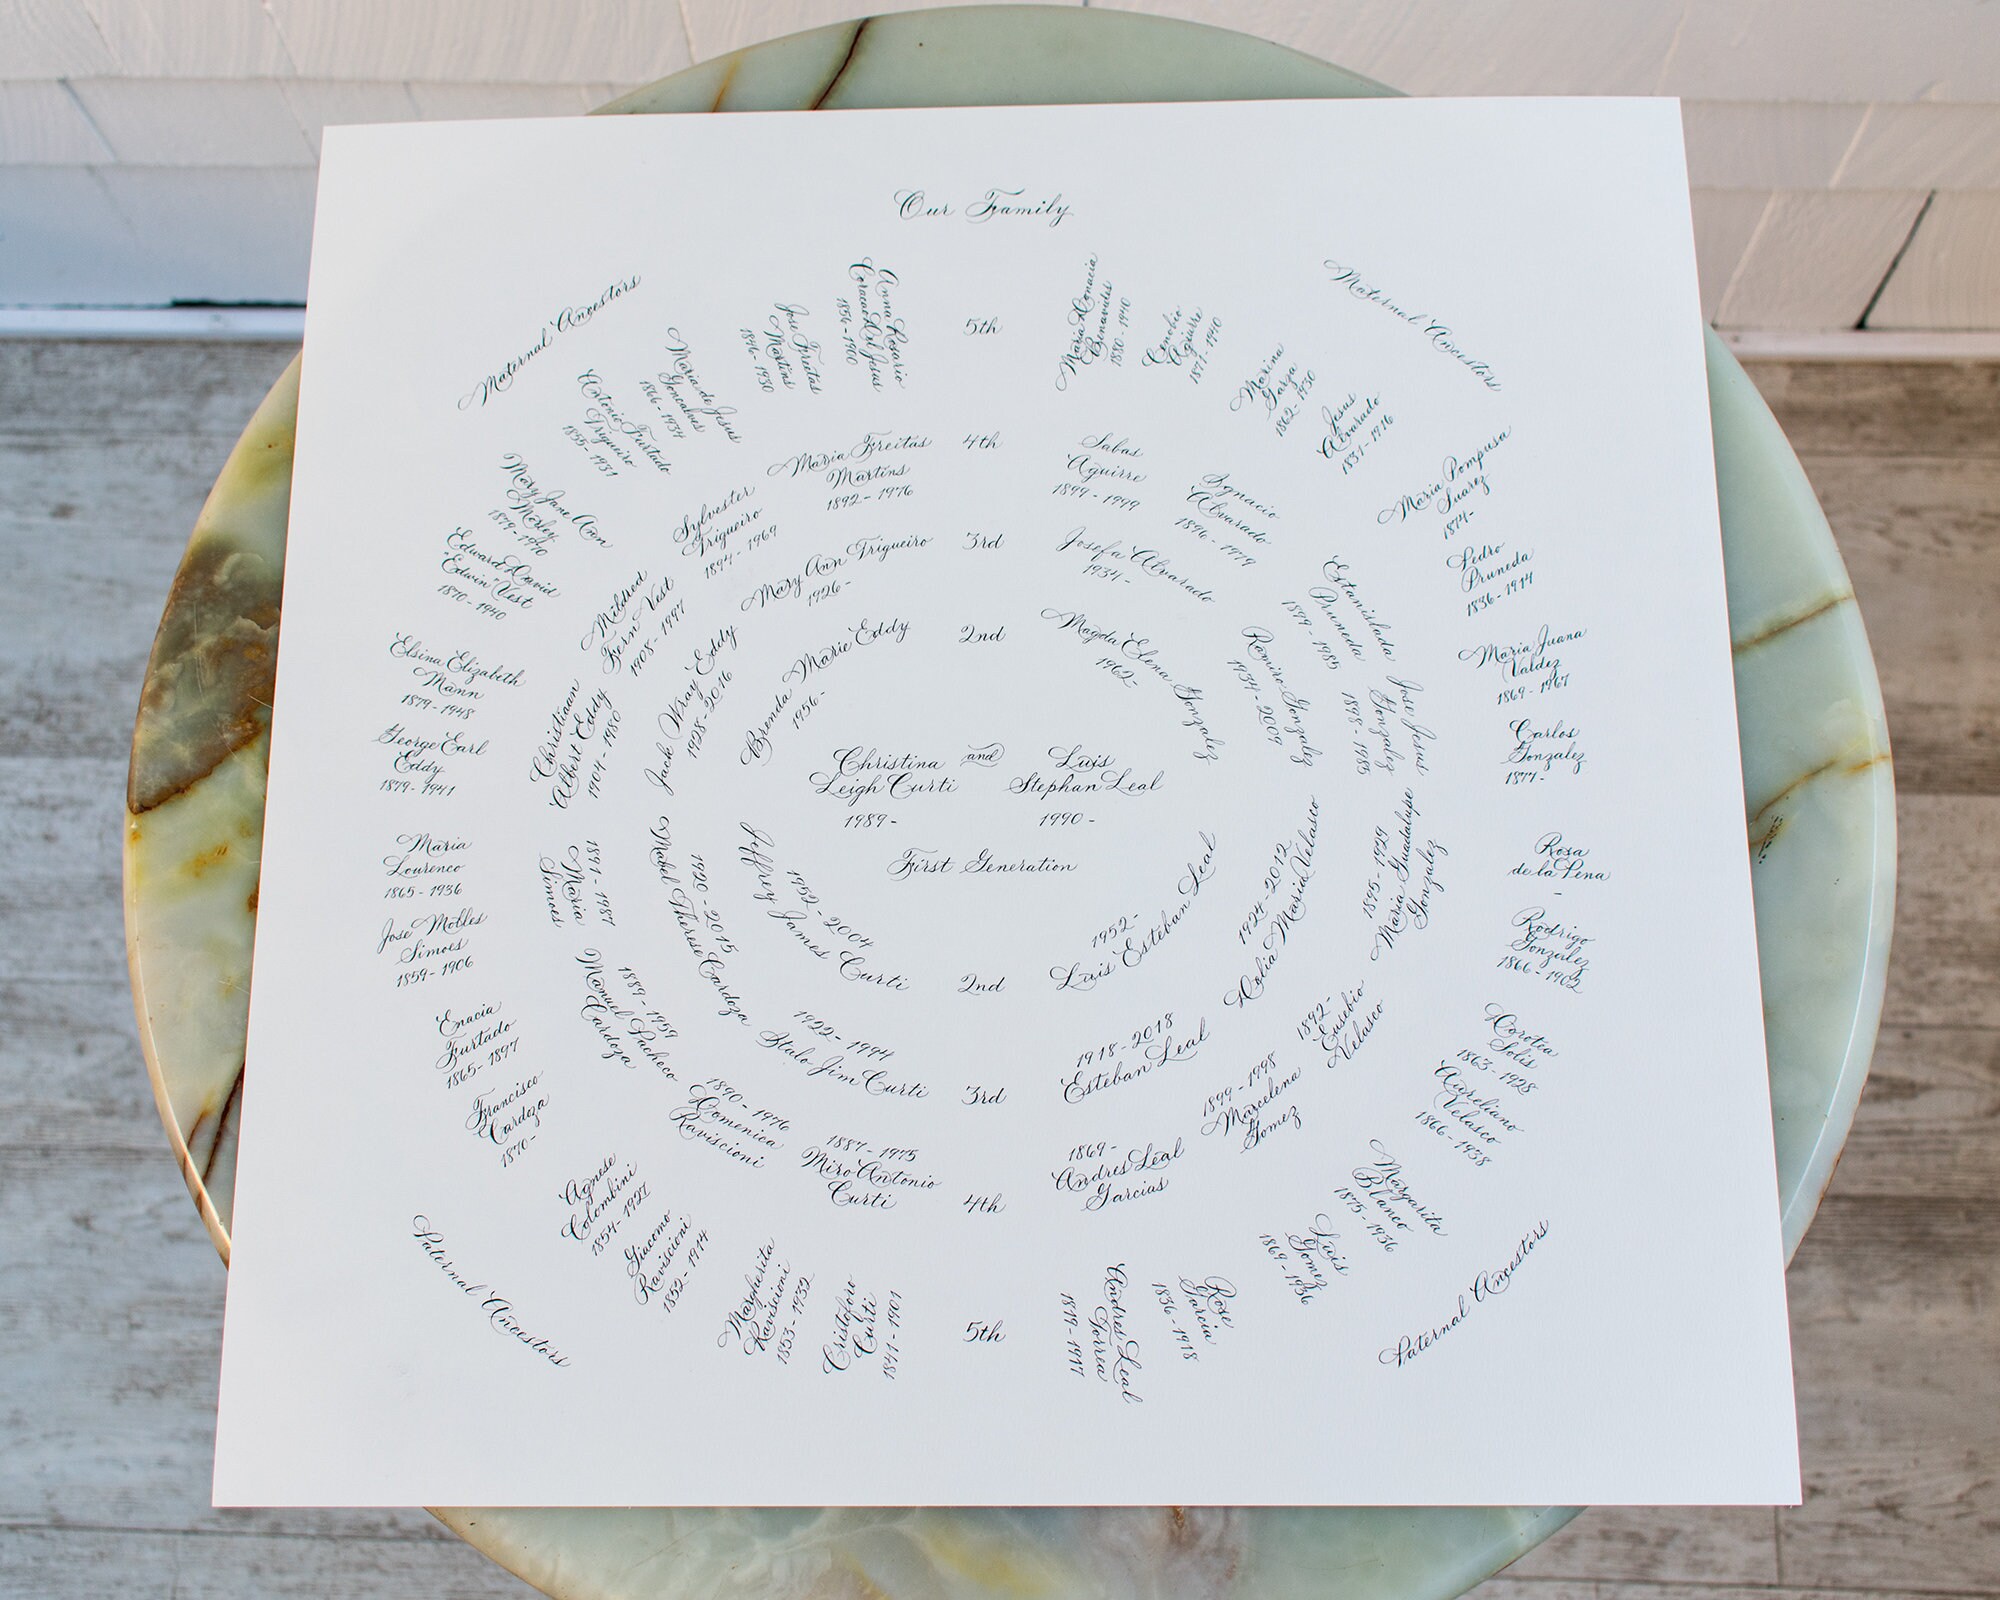 Our Family
Maternal Ancestors
Maternal Ancestors
5th
Anna Rosario
Coracao Del Jesus
1856 - 1900
Jose Freitas
Martins
1846 - 1930
Maria de Jesus
Goncalves
1866 - 1934
Antonio Furtado
Trigueiro
1855 - 1931
Mary Jane Ann
Morley
1879 - 1970
Edward David
"Edwin" Vest
1870 - 1940
Elsina Elizabeth
Mann
1879 - 1948
George Earl
Eddy
1879 - 1941
Maria
Benavides
1880 - 1940
Cenobio
Aguirre
1871 - 1940
Marina
Garza
1862 - 1930
Jesus
Alvarado
1831 - 1916
Maria Pompusa
Suarez
1874 -
Pedro
Pruneda
1836 - 1914
Maria Juana
Valdez
1869 - 1967
Carlos
Gonzalez
1877 -
4th
Maria Freitas
Martins
1892 - 1976
Sylvester
Trigueiro
1894 - 1969
Mildred
Fern Vest
1908 - 1997
Christiaan
Albert Eddy
1904 - 1980
Sabas
Aguirre
1899 - 1999
Ignacio
Alvarado
1896 - 1979
Estanislada
Pruneda
1899 - 1985
Jose Jesus
Gonzalez
1898 - 1985
3rd
Mary Ann Trigueiro
1926 -
Jack Wray Eddy
1928 - 2016
Josefa Alvarado
1934 -
Ramiro Gonzalez
1934 - 2009
2nd
Brenda Marie Eddy
1956 -
Magda Elena Gonzalez
1962 -
Christina and Luis
Leigh Curti Stephan Leal
1989 - 1990 -
First Generation
1952 - 2004
Jeffrey James Curti
1952 -
Luis Esteban Leal
2nd
1920 - 2015
Mabel Therese Cardoza
1922 - 1994
Italo Jim Curti
1924 - 2012
Delia Maria Velasco
1918 - 2018
Esteban Leal
3rd
1891 - 1987
Maria
Simoes
1889 - 1959
Manuel Pacheco
Cardoza
1890 - 1976
Domenica
Raviscioni
1887 - 1975
Miro Antonio
Curti
1895 - 1929
Maria Guadalupe
Gonzalez
1892 -
Eusebio
Velasco
1899 - 1998
Marcelena
Gomez
1869 -
Andres Leal
Garcias
4th
Maria
Lourenco
1865 - 1936
Jose Mobles
Simoes
1859 - 1906
Enacia
Furtado
1865 - 1897
Francisco
Cardoza
1870 -
Agnese
Colombini
1854 - 1927
Giacomo
Raviscioni
1852 - 1914
Margherita
Raviscioni
1853 - 1932
Cristoforo
Curti
1841 - 1901
Rosa
de la Pena
-
Rodrigo
Gonzalez
1866 - 1902
Dorotea
Solis
1863 - 1928
Aureliano
Velasco
1866 - 1938
Margarita
Blanco
1875 - 1936
Luis
Gomez
1869 - 1936
Rose
Garcia
1836 - 1918
Andres Leal
Torrea
1819 - 1917
5th
Paternal Ancestors
Paternal Ancestors